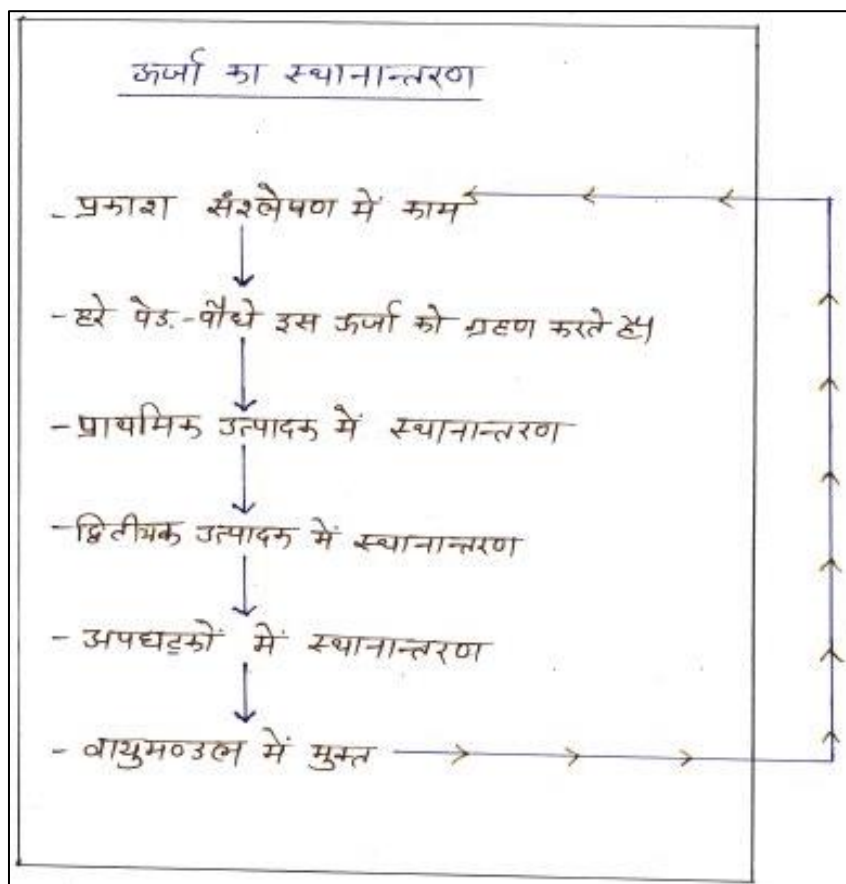 ऊर्जा का स्थानान्तरण
- प्रकाश संश्लेषण में काम
- हरे पेड़-पौधे इस ऊर्जा को ग्रहण करते हैं।
- प्राथमिक उत्पादक में स्थानान्तरण
- द्वितीयक उत्पादक में स्थानान्तरण
- अपघटकों में स्थानान्तरण
- वायुमण्डल में मुक्त